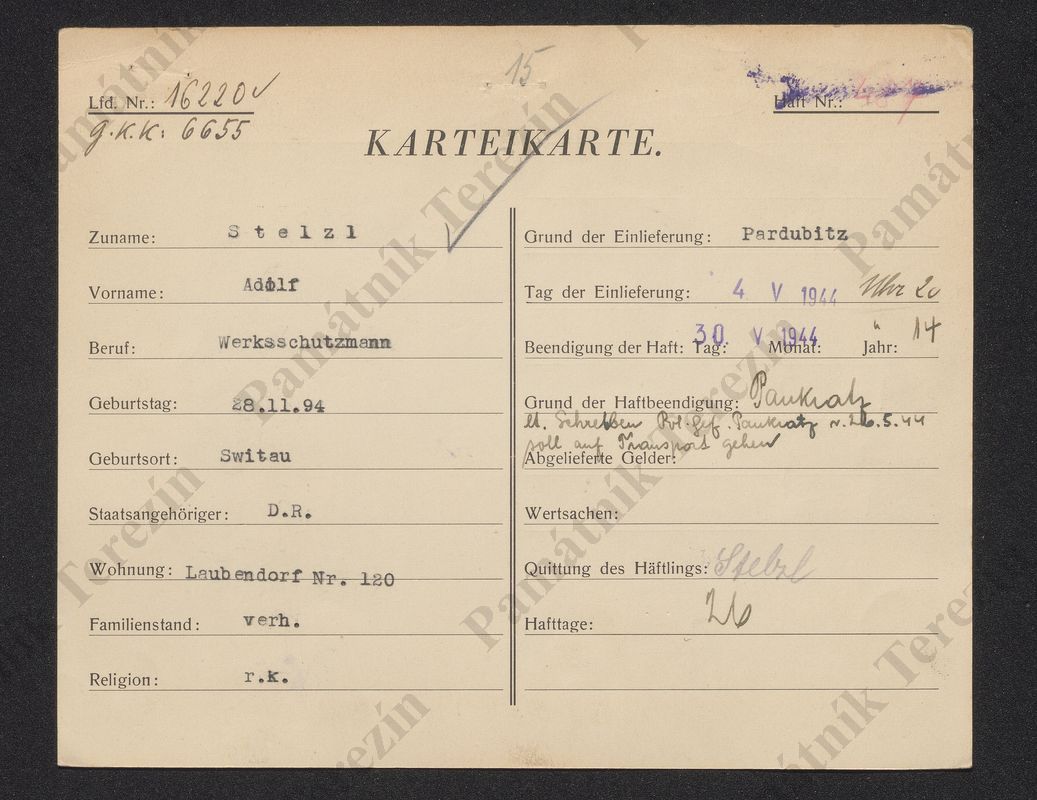 15
Lfd. Nr.: 16220
g.K.K: 6655
Haft Nr.:
KARTEIKARTE.
Zuname: Stelzl
Vorname: Adolf
Beruf: Werksschutzmann
Geburtstag: 28.11.94
Geburtsort: Switau
Staatsangehöriger: D.R.
Wohnung: Laubendorf Nr. 120
Familienstand: verh.
Religion: r.k.
Grund der Einlieferung: Pardubitz
Tag der Einlieferung: 4 V 1944 Uhr 20
Beendigung der Haft: Tag: 30. Monat: V 1944 Jahr: " 14
Grund der Haftbeendigung: Pankratz
lt. Schreiben Pol. Gef. Pankratz v. 26.5.44
soll auf Transport gehen
Abgelieferte Gelder:
Wertsachen:
Quittung des Häftlings: Stelzl
Hafttage: 26
Památník Terezín